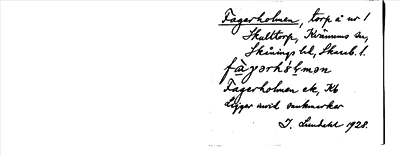 Fagerholmen, torp å nr 1
Skulltorp, Kvänums sn,
Skånings hd, Skarab. l.
fàgərhólmən
Fagerholmen ek, Kb
Ligger invid sankmarker
I. Lundahl 1928.